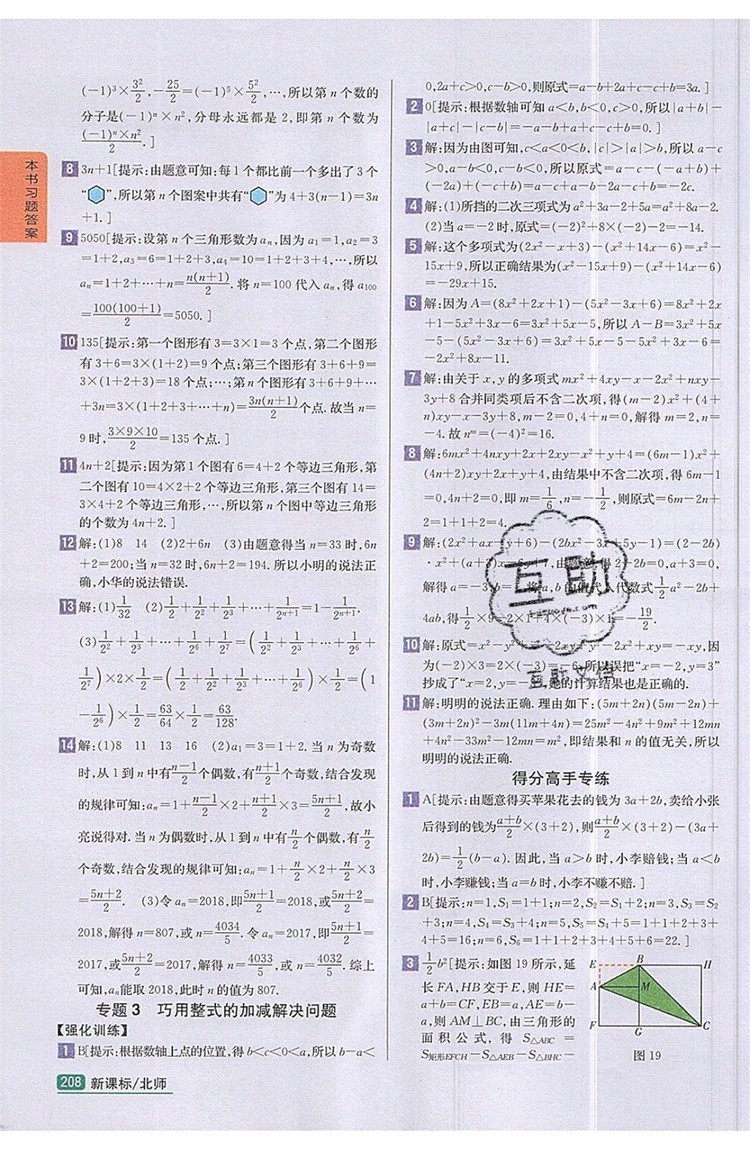 本书习题答案
(-1)³×3²/2, -25/2=(-1)⁵×5²/2,…,所以第n个数的
分子是(-1)ⁿ×n²,分母永远都是2,即第n个数为
(-1)ⁿ×n²/2.]
8 3n+1[提示:由题意可知:每1个都比前一个多出了3个
“ ”,所以第n个图案中共有“ ”为4+3(n-1)=3n
+1.]
9 5050[提示:设第n个三角形数为aₙ,因为a₁=1,a₂=3
=1+2,a₃=6=1+2+3,a₄=10=1+2+3+4,…,所以
aₙ=1+2+…+n=n(n+1)/2.将n=100代入aₙ,得a₁₀₀
=100(100+1)/2=5050.]
10 135[提示:第一个图形有3=3×1=3个点,第二个图形
有3+6=3×(1+2)=9个点;第三个图形有3+6+9=
3×(1+2+3)=18个点;…;第n个图形有3+6+9+…
+3n=3×(1+2+3+…+n)=3n(n+1)/2个点.故当n=
9时,3×9×10/2=135个点.]
11 4n+2[提示:因为第1个图有6=4+2个等边三角形,第
二个图有10=4×2+2个等边三角形,第三个图有14=
3×4+2个等边三角形,…,所以第n个图中等边三角形
的个数为4n+2.]
12 解:(1)8 14 (2)2+6n (3)由题意得当n=33时,6n
+2=200;当n=32时,6n+2=194.所以小明的说法正
确,小华的说法错误.
13 解:(1)1/32 (2)1/2+1/2²+1/2³+…+1/2ⁿ⁺¹=1-1/2ⁿ⁺¹.
(3)1/2²+1/2³+…+1/2⁶+1/2⁷=(1/2²+1/2³+…+1/2⁶+
1/2⁷)×2×1/2=(1/2+1/2²+1/2³+…+1/2⁶)×1/2=(1-
1/2⁶)×1/2=63/64×1/2=63/128.
14 解:(1)8 11 13 16 (2)a₁=3=1+2.当n为奇数
时,从1到n中有n-1/2个偶数,有n+1/2个奇数,结合发现
的规律可知:aₙ=1+n-1/2×2+n+1/2×3=5n+1/2,故小
亮说得对.当n为偶数时,从1到n中有n/2个偶数,有n/2
个奇数,结合发现的规律可知:aₙ=1+n/2×2+n/2×3
=5n+2/2. (3)令aₙ=2018,即5n+1/2=2018,或5n+2/2=
2018,解得n=807,或n=4034/5.令aₙ=2017,即5n+1/2=
2017,或5n+2/2=2017,解得n=4033/5,或n=4032/5.综上
可知,aₙ能取2018,此时n的值为807.
专题3 巧用整式的加减解决问题
【强化训练】
1 B[提示:根据数轴上点的位置,得b<c<0<a,所以b-a<
208 新课标/北师
0,2a+c>0,c-b>0,则原式=a-b+2a+c-c+b=3a.]
2 0[提示:根据数轴可知a<b,b<0,c>0,所以|a+b|-
|a+c|-|c-b|=-a-b+a+c-c+b=0.]
3 解:因为由图可知,c<a<0<b,|c|>|a|>|b|,所以a-c
>0,a-b<0,c-b<0,所以原式=a-c-(-a+b)+
(-2a)+(-c+b)=a-c+a-b-2a-c+b=-2c.
4 解:(1)所挡的二次三项式为a²+3a-2+5a=a²+8a-2.
(2)当a=-2时,原式=(-2)²+8×(-2)-2=-14.
5 解:这个多项式为(2x²-x+3)-(x²+14x-6)=x²-
15x+9,所以正确结果为(x²-15x+9)-(x²+14x-6)
=-29x+15.
6 解:因为A=(8x²+2x+1)-(5x²-3x+6)=8x²+2x
+1-5x²+3x-6=3x²+5x-5,所以A-B=3x²+5x
-5-(5x²-3x+6)=3x²+5x-5-5x²+3x-6=
-2x²+8x-11.
7 解:由关于x,y的多项式mx²+4xy-x-2x²+nxy-
3y+8合并同类项后不含二次项,得(m-2)x²+(4+
n)xy-x-3y+8,m-2=0,4+n=0,解得m=2,n=
-4.故nᵐ=(-4)²=16.
8 解:6mx²+4nxy+2x+2xy-x²+y+4=(6m-1)x²+
(4n+2)xy+2x+y+4,由结果中不含二次项,得6m-1
=0,4n+2=0,即m=1/6,n=-1/2,则原式=6m-2n+
2=1+1+2=4.
9 解:(2x²+ax-y+6)-(2bx²-3x+5y-1)=(2-2b)
·x²+(a+3)x-6y+7,由题意得2-2b=0,a+3=0,
解得a=-3,b=1.将a,b的值代入代数式1/2a²-2b+
4ab,得1/2×9-2×1+4×(-3)×1=-19/2.
10 解:原式=x²-y²-2x²+xy-y²+2y²-2xy+x²=-xy,因
为(-2)×3=2×(-3)=-6,所以误把“x=-2,y=3”
抄成了“x=2,y=-3”,她的计算结果也是正确的.
11 解:明明的说法正确.理由如下:(5m+2n)(5m-2n)+
(3m+2n)²-3m(11m+4n)=25m²-4n²+9m²+12mn
+4n²-33m²-12mn=m²,即结果和n的值无关,所以
明明的说法正确.
得分高手专练
1 A[提示:由题意得买苹果花去的钱为3a+2b,卖给小张
后得到的钱为a+b/2×(3+2),则a+b/2×(3+2)-(3a+
2b)=1/2(b-a).因此,当a>b时,小李赔钱;当a<b
时,小李赚钱;当a=b时,小李不赚不赔.]
2 B[提示:n=1,S₁=1;n=2,S₂=S₁+2;n=3,S₃=S₂
+3;n=4,S₄=S₃+4;n=5,S₅=S₄+5=1+1+2+3+
4+5=16;n=6,S₆=1+1+2+3+4+5+6=22.]
3 1/2b²[提示:如图19所示,延
长FA,HB交于E,则HE=
a+b=CF,EB=a,AE=b-
a,则AM⊥BC,由三角形的
面积公式,得S△ABC=
S矩形EFCH-S△AEB-S△BHC-
E B H
A M
F G C
图19
互助
互助文档